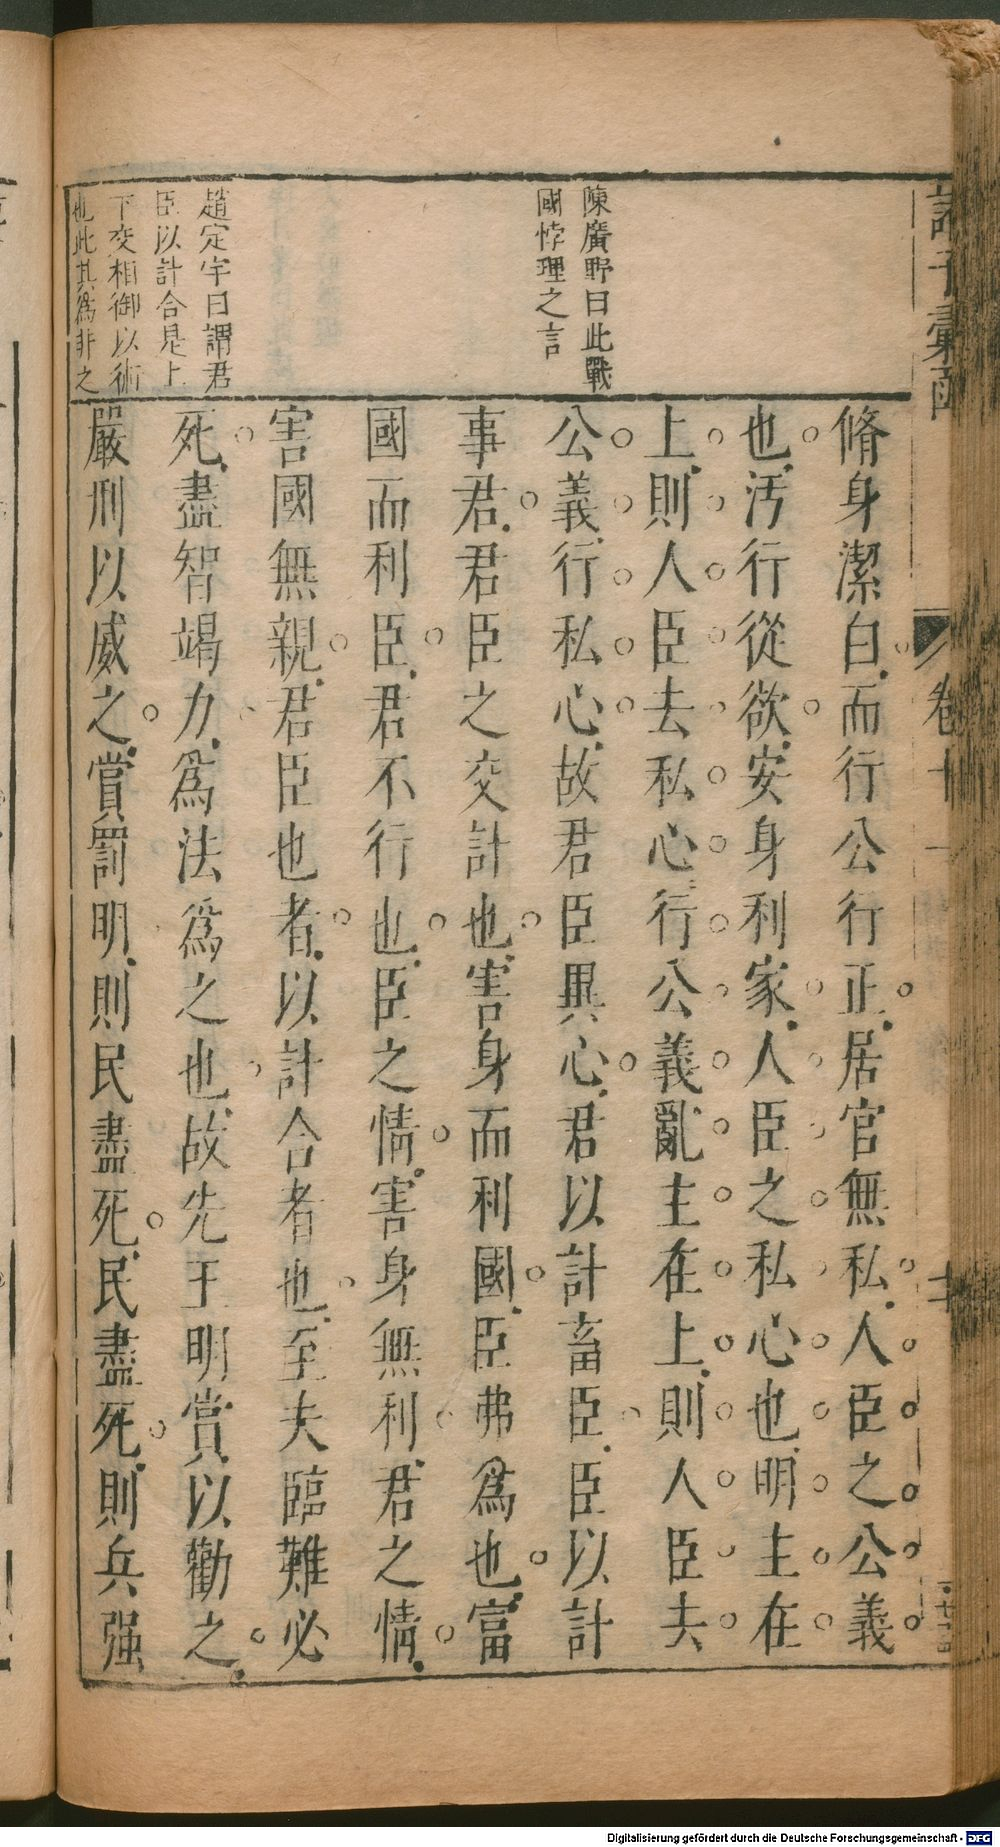 陳廣野曰此戰
國悖理之言
趙定宇曰謂君
臣以計合是上
下交相御以術
也此其爲非之
脩身潔白而行公行正居官無私人臣之公義
也汚行從欲安身利家人臣之私心也明主在
上則人臣去私心行公義亂主在上則人臣去
公義行私心故君臣異心君以計畜臣臣以計
事君君臣之交計也害身而利國臣弗爲也富
國而利臣君不行也臣之情害身無利君之情
害國無親君臣也者以計合者也至夫臨難必
死盡智竭力爲法爲之也故先王明賞以勸之
嚴刑以威之賞罰明則民盡死民盡死則兵强
卷十一
Digitalisierung gefördert durch die Deutsche Forschungsgemeinschaft - DFG